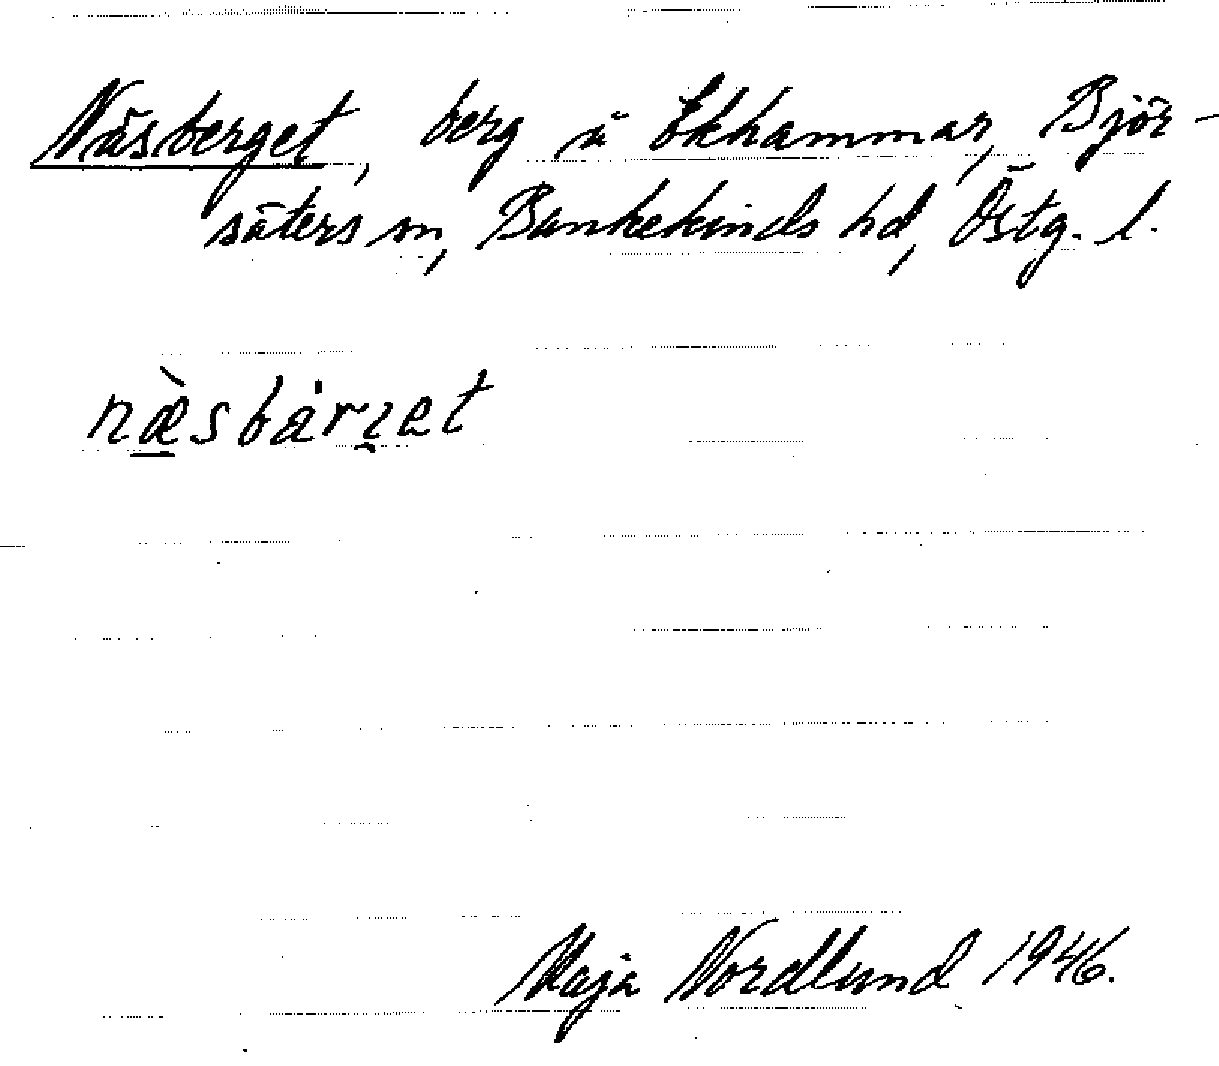 Näsberget, berg å Ekhammar, Björ-
säters sn, Bankekinds hd, Östg. l.
næ̀sbȧrʒet
Maja Nordlund 1946.